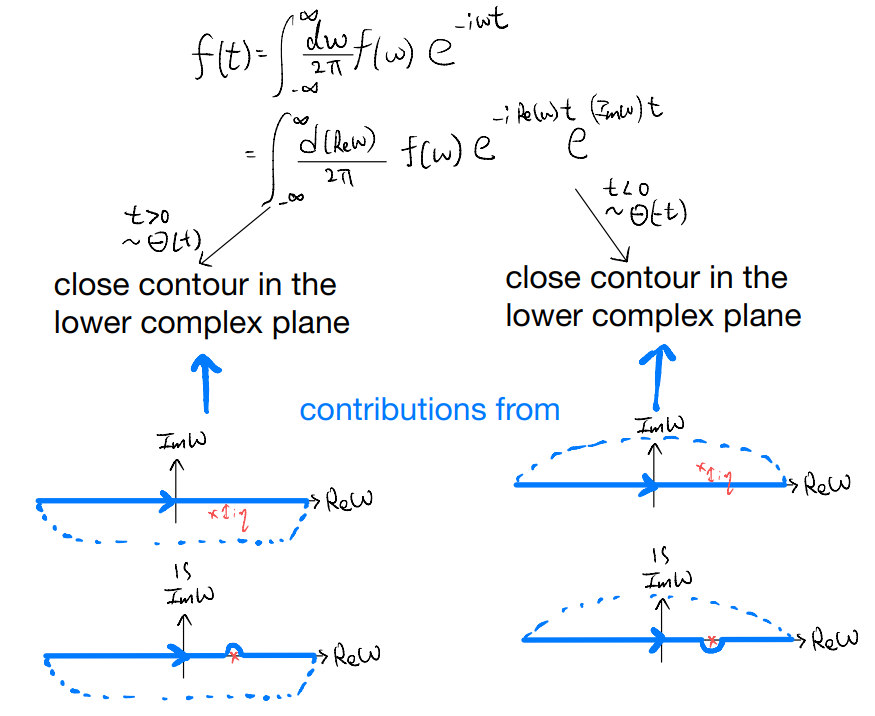 f(t) = ∫_{-∞}^{∞} dω/2π f(ω) e^{-iωt}
= ∫_{-∞}^{∞} d(Reω)/2π f(ω) e^{-i Re(ω)t} e^{(Imω)t}
t>0
~ Θ(t)
t<0
~ Θ(-t)
close contour in the
lower complex plane
close contour in the
lower complex plane
contributions from
Imω
Reω
×↕iη
Imω
Reω
×↕iη
IS
Imω
Reω
×
IS
Imω
Reω
×